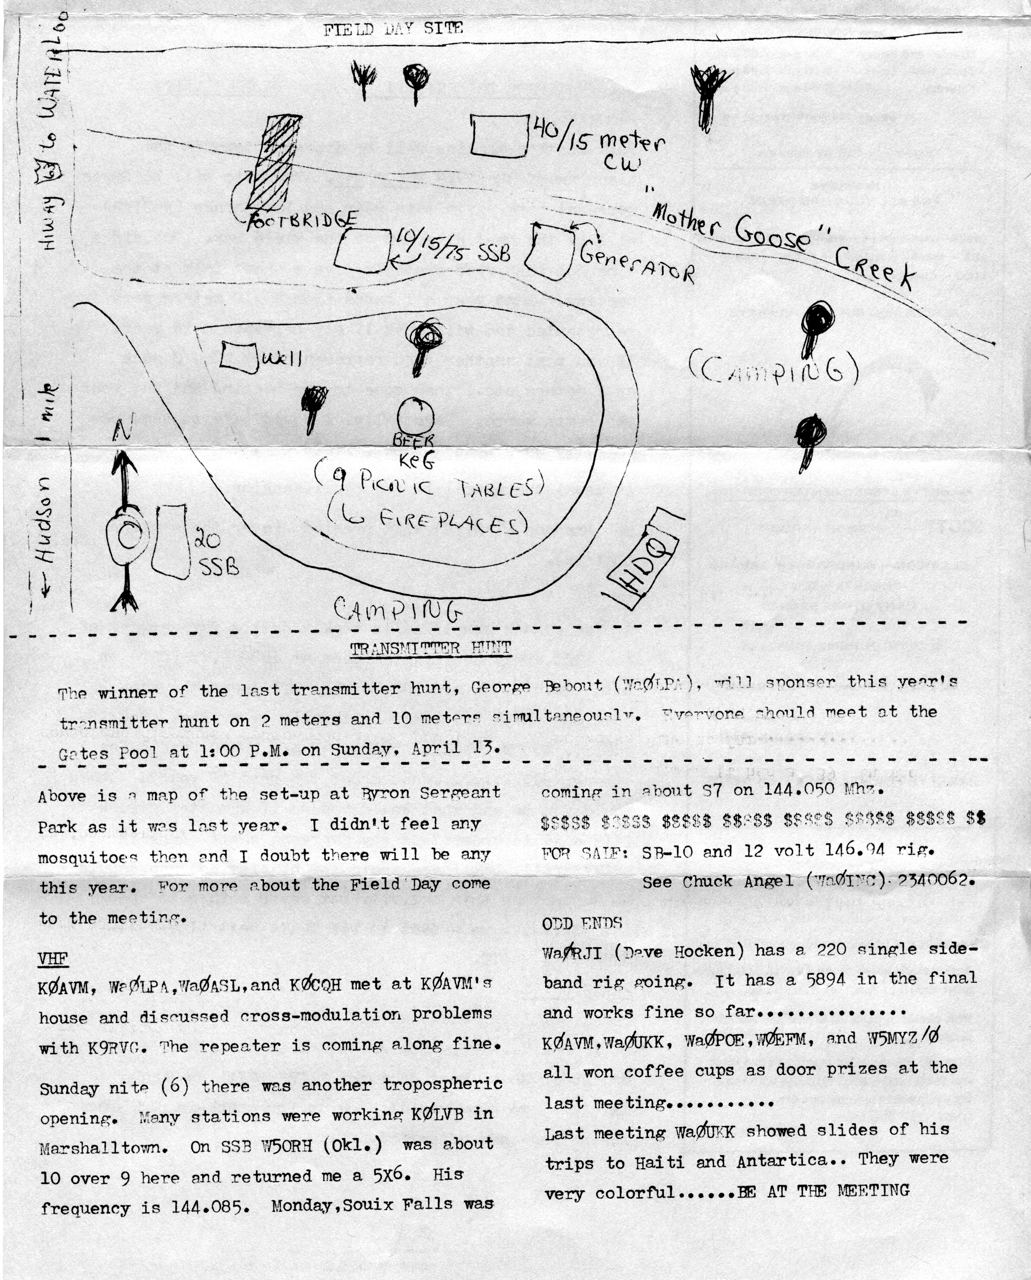 FIELD DAY SITE
HIWAY 63 to WATERLOO
40/15 meter
CW
"Mother Goose"
Creek
FOOTBRIDGE
10/15/75 SSB
GENERATOR
Well
(CAMPING)
BEER
KEG
(9 PICNIC TABLES)
(6 FIREPLACES)
N
← Hudson 1 mile
20
SSB
HDQ
CAMPING
TRANSMITTER HUNT
The winner of the last transmitter hunt, George Bebout (WaØLPA), will sponser this year's
transmitter hunt on 2 meters and 10 meters simultaneously. Everyone should meet at the
Gates Pool at 1:00 P.M. on Sunday, April 13.
Above is a map of the set-up at Byron Sergeant
Park as it was last year. I didn't feel any
mosquitoes then and I doubt there will be any
this year. For more about the Field Day come
to the meeting.
VHF
KØAVM, WaØLPA,WaØASL,and KØCQH met at KØAVM's
house and discussed cross-modulation problems
with K9RVG. The repeater is coming along fine.
Sunday nite (6) there was another tropospheric
opening. Many stations were working KØLVB in
Marshalltown. On SSB W5ORH (Okl.) was about
10 over 9 here and returned me a 5X6. His
frequency is 144.085. Monday,Souix Falls was
coming in about S7 on 144.050 Mhz.
$$$$$ $$$$$ $$$$$ $$$$$ $$$$$ $$$$$ $$$$$ $$
FOR SALE: SB-10 and 12 volt 146.94 rig.
See Chuck Angel (WaØINC) 2340062.
ODD ENDS
WaØRJI (Dave Hocken) has a 220 single side-
band rig going. It has a 5894 in the final
and works fine so far...............
KØAVM,WaØUKK, WaØPOE,WØEFM, and W5MYZ/Ø
all won coffee cups as door prizes at the
last meeting...........
Last meeting WaØUKK showed slides of his
trips to Haiti and Antartica.. They were
very colorful......BE AT THE MEETING